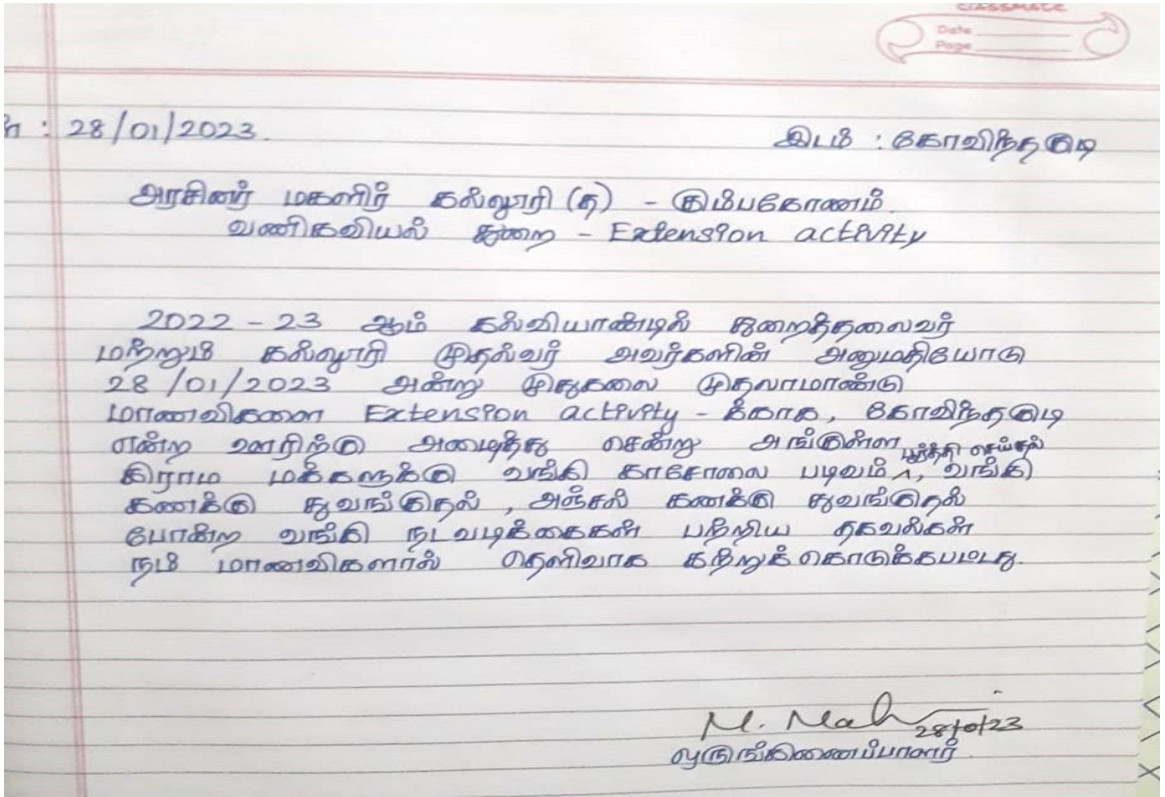 CLASSMATE
Date
Page
: 28/01/2023.
இடம் : கோவிந்தகுடி
அரசினர் மகளிர் கல்லூரி (த) - கும்பகோணம்
வணிகவியல் துறை - Extension activity
2022 - 23 ஆம் கல்வியாண்டில் துறைத்தலைவர்
மற்றும் கல்லூரி முதல்வர் அவர்களின் அனுமதியோடு
28/01/2023 அன்று முதுகலை முதலாமாண்டு
மாணவிகளை Extension activity - க்காக, கோவிந்தகுடி
என்ற ஊரிற்கு அழைத்து சென்று அங்குள்ள
கிராம மக்களுக்கு வங்கி காசோலை படிவம் பூர்த்தி செய்தல், வங்கி
கணக்கு துவங்குதல், அஞ்சல் கணக்கு துவங்குதல்
போன்ற வங்கி நடவடிக்கைகள் பற்றிய தகவல்கள்
நம் மாணவிகளால் தெளிவாக கற்றுக் கொடுக்கபட்டது.
28/0/23